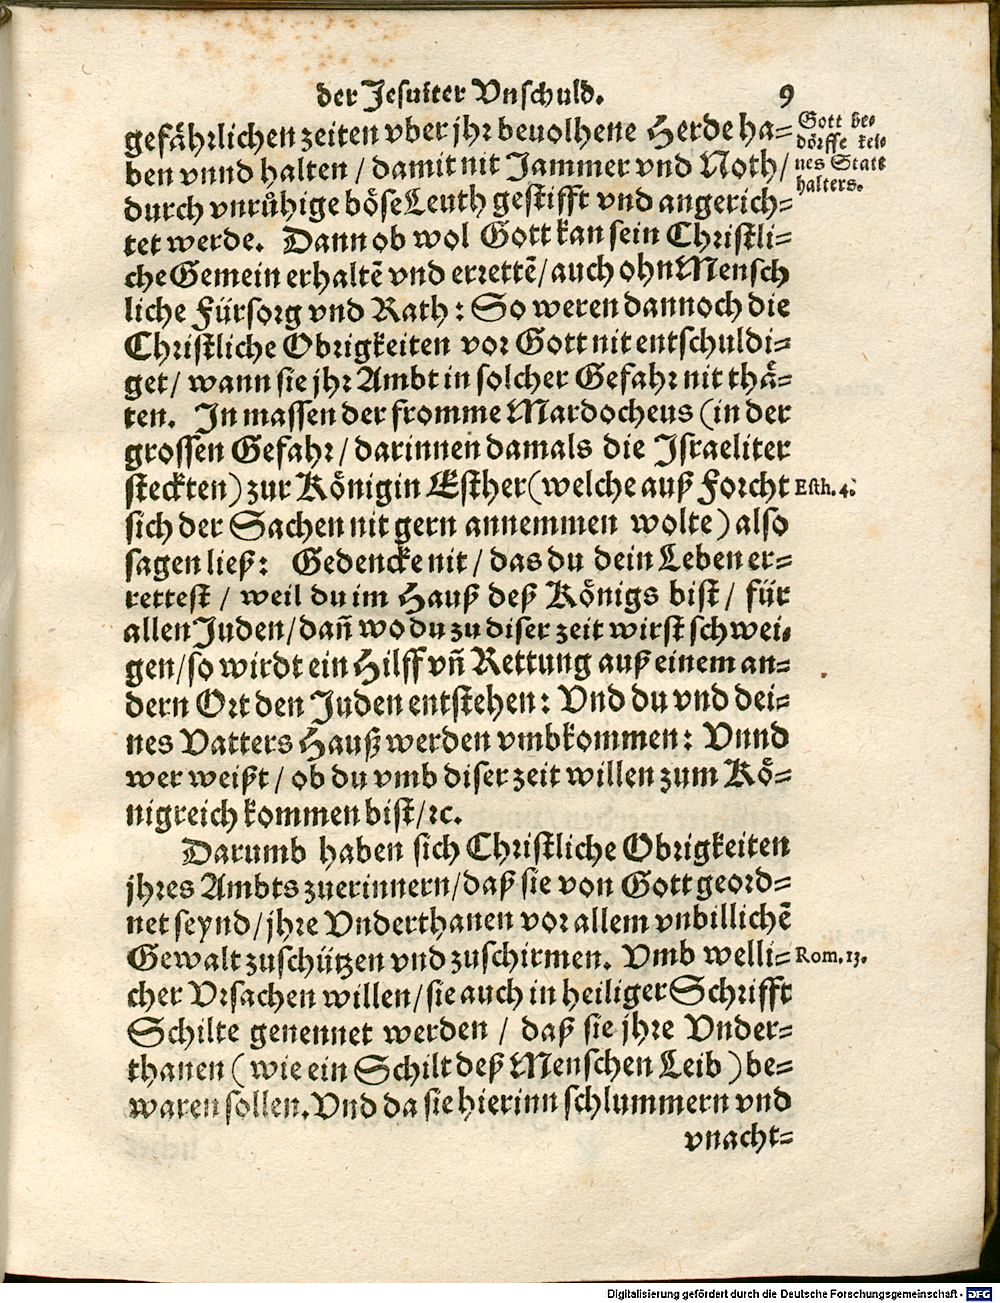 der Jesuiter Vnschuld. 9
gefährlichen zeiten vber jhr beuolhene Herde ha-
ben vnnd halten / damit nit Jammer vnd Noth/
durch vnrůhige böse Leuth gestifft vnd angerich-
tet werde. Dann ob wol Gott kan sein Christli-
che Gemein erhaltē vnd errettē/ auch ohn Mensch
liche Fürsorg vnd Rath: So weren dannoch die
Christliche Obrigkeiten vor Gott nit entschuldi-
get/ wann sie jhr Ambt in solcher Gefahr nit thä-
ten. In massen der fromme Mardocheus (in der
grossen Gefahr/ darinnen damals die Israeliter
steckten) zur Königin Esther (welche auß Forcht
sich der Sachen nit gern annemmen wolte) also
sagen ließ: Gedencke nit / das du dein Leben er-
rettest / weil du im Hauß deß Königs bist / für
allen Juden/ dañ wo du zu diser zeit wirst schwei-
gen/ so wirdt ein Hilff vñ Rettung auß einem an-
dern Ort den Juden entstehen: Vnd du vnd dei-
nes Vatters Hauß werden vmbkommen: Vnnd
wer weißt / ob du vmb diser zeit willen zum Kö-
nigreich kommen bist/ ꝛc.
Darumb haben sich Christliche Obrigkeiten
jhres Ambts zuerinnern/ daß sie von Gott geord-
net seynd/ jhre Vnderthanen vor allem vnbillichē
Gewalt zuschützen vnd zuschirmen. Vmb welli-
cher Vrsachen willen/ sie auch in heiliger Schrifft
Schilte genennet werden / daß sie jhre Vnder-
thanen (wie ein Schilt deß Menschen Leib) be-
waren sollen. Vnd da sie hierinn schlummern vnd
vnacht-
Gott be-
dörffe kei-
nes Statt
halters.
Esth. 4.
Rom. 13.
Digitalisierung gefördert durch die Deutsche Forschungsgemeinschaft - DFG